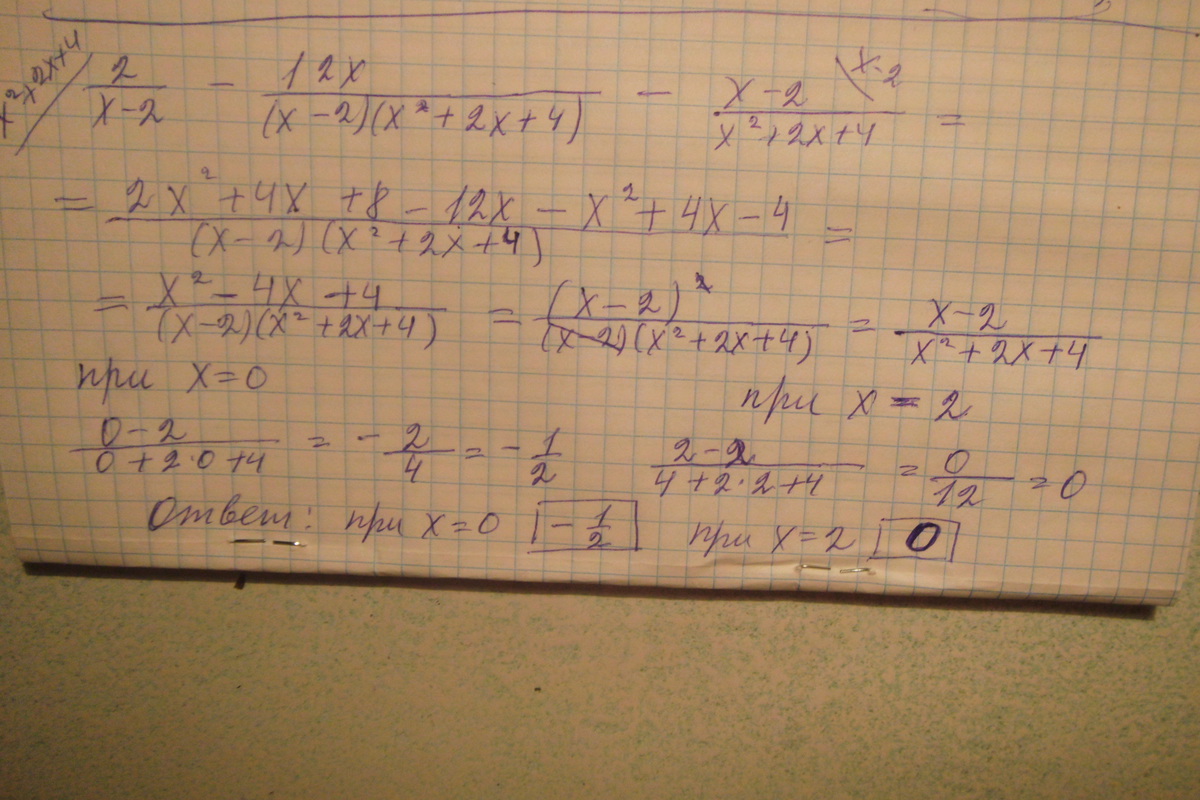 x² x 2x+4 / 2/(x-2) - 12x/((x-2)(x²+2x+4)) - (x-2)/(x²+2x+4) \ x-2 =
= (2x²+4x+8-12x-x²+4x-4)/((x-2)(x²+2x+4)) =
= (x²-4x+4)/((x-2)(x²+2x+4)) = (x-2)²/((x-2)(x²+2x+4)) = (x-2)/(x²+2x+4)
при x=0
при x=2
(0-2)/(0+2·0+4) = -2/4 = -1/2
(2-2)/(4+2·2+4) = 0/12 = 0
Ответ: при x=0 -1/2 при x=2 0